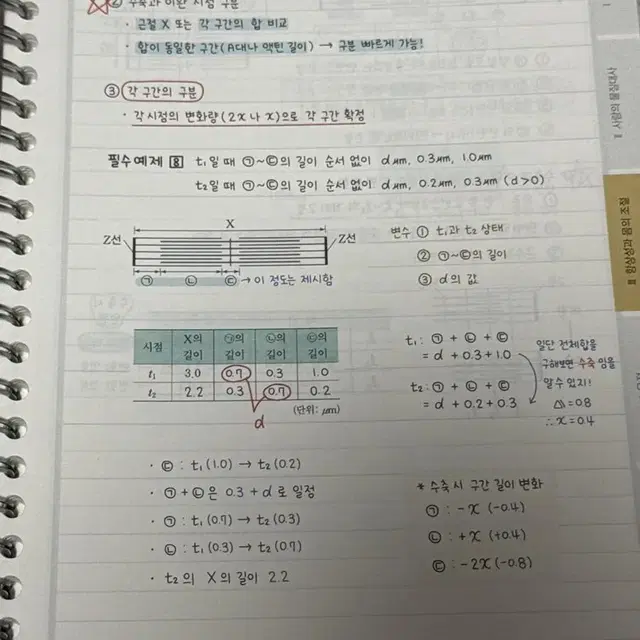 ② 수축과 이완 시점 구분
· 근절 X 또는 각 구간의 합 비교
· 합이 동일한 구간(A대나 액틴 길이) → 구분 빠르게 가능!
③ 각 구간의 구분
· 각 시점의 변화량(2x나 x)으로 각 구간 확정
필수예제 8 t₁일 때 ㉠~㉢의 길이 순서 없이 d μm, 0.3μm, 1.0μm
t₂일 때 ㉠~㉢의 길이 순서 없이 d μm, 0.2μm, 0.3μm (d>0)
X
Z선 Z선
㉠ ㉡ ㉢ → 이 정도는 제시함
변수 ① t₁과 t₂ 상태
② ㉠~㉢의 길이
③ d의 값
시점 X의 길이 ㉠의 길이 ㉡의 길이 ㉢의 길이
t₁ 3.0 0.7 0.3 1.0
t₂ 2.2 0.3 0.7 0.2
(단위: μm)
d
t₁: ㉠ + ㉡ + ㉢
= d + 0.3 + 1.0
t₂: ㉠ + ㉡ + ㉢
= d + 0.2 + 0.3
일단 전체합을
구해보면 수축임을
알 수 있지!
Δ = 0.8
∴ x = 0.4
· ㉢ : t₁(1.0) → t₂(0.2)
· ㉠+㉡은 0.3 + d로 일정
· ㉠ : t₁(0.7) → t₂(0.3)
· ㉡ : t₁(0.3) → t₂(0.7)
· t₂의 X의 길이 2.2
* 수축 시 구간 길이 변화
㉠ : -x (-0.4)
㉡ : +x (+0.4)
㉢ : -2x (-0.8)
Ⅱ 사람의 물질대사
Ⅲ 항상성과 몸의 조절